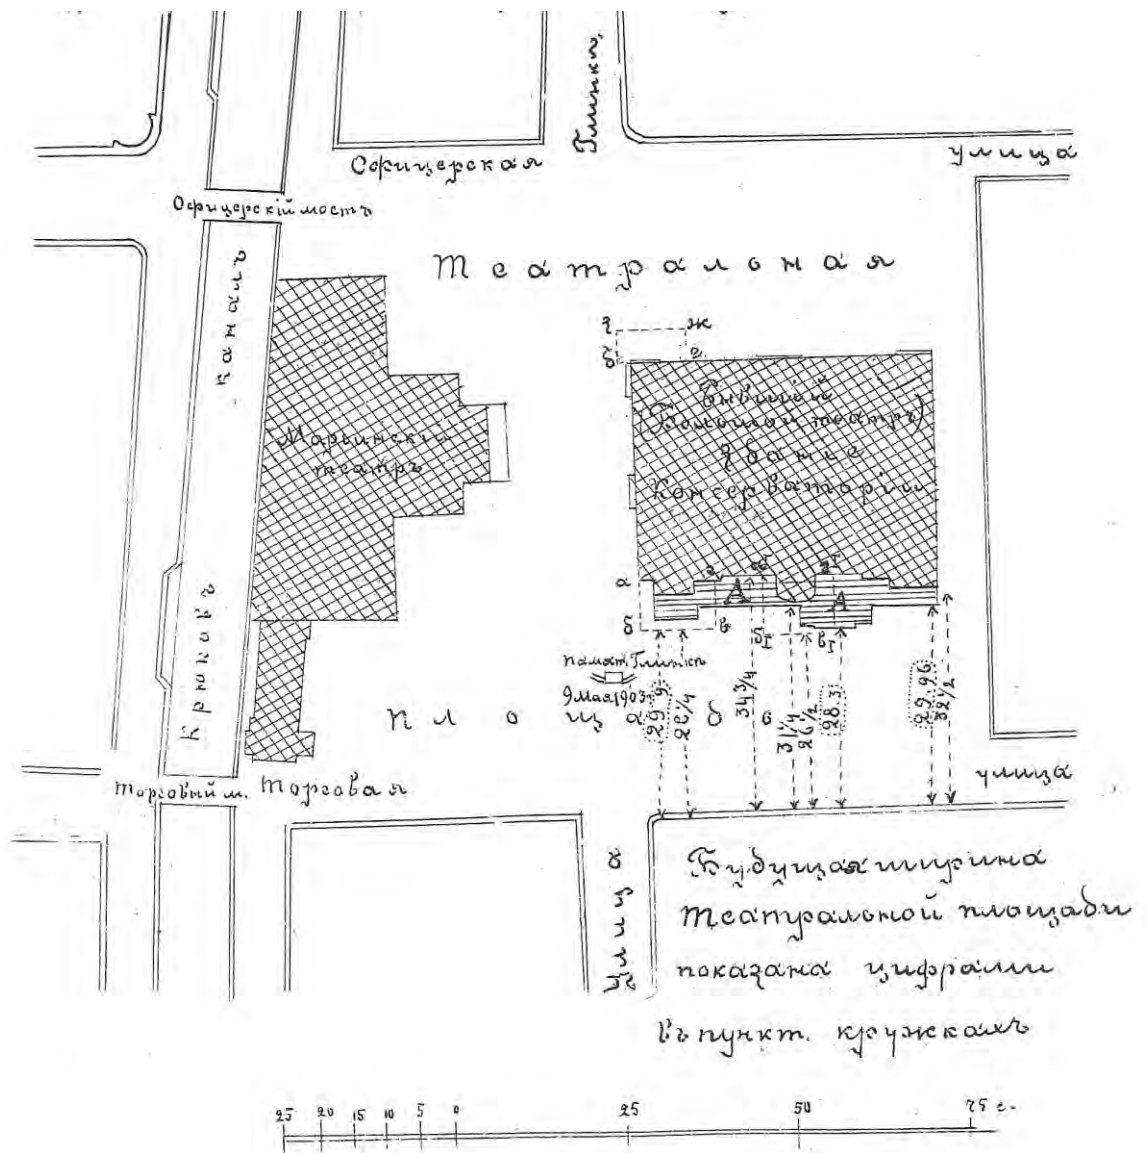 Глинки
Офицерская
улица
Офицерскій мостъ
Театральная
каналъ
з ж
б г
Бывшій
(Большой театръ)
Зданіе
Консерваторіи
Марьинскій
театръ
а
г
А
А
б
в
бI
вI
памят. Глинки
9 мая 1903 г.
29.9
26 1/4
34 3/4
31 1/4
26 1/2
28.3
29.96
32 1/2
площадь
Крюковъ
улица
Торговый м.
Торговая
улица
Будущая ширина
Театральной площади
показана цифрами
въ пункт. кружкахъ
25 20 15 10 5 0 25 50 75 с.